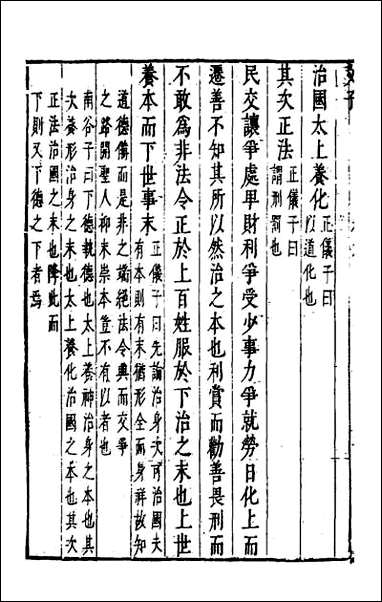 文子
治國太上養化正儀子曰
以道化也
其次正法正儀子曰
謂刑罰也
民交讓爭處卑財利爭受少事力爭就勞日化上而
遷善不知其所以然治之本也利賞而勸善畏刑而
不敢為非法令正於上百姓服於下治之末也上世
養本而下世事末正儀子曰先論治身次可治國夫
有本則有末猶形全而身祥故知
道德備而是非之端絶法令典而交爭
之路開聖人抑末崇本豈不有以者也
南谷子曰下德執德也太上養神治身之本也其
次養形治身之末也太上養化治國之本也其次
正法治國之末也降此而
下則又下德之下者焉